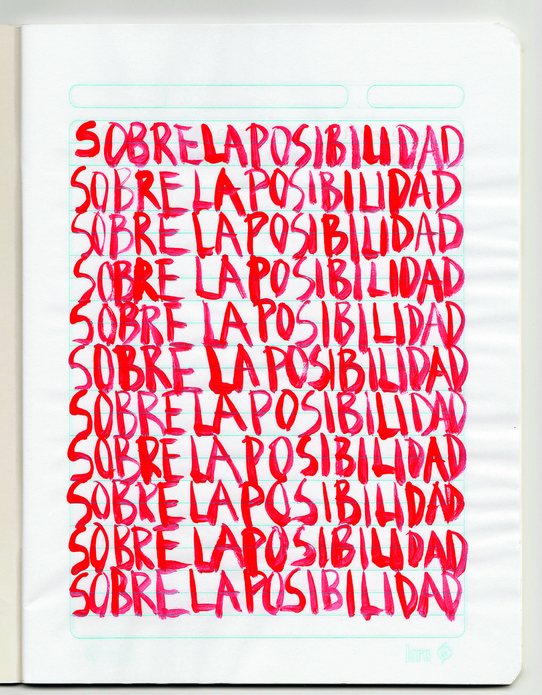 SOBRE LA POSIBILIDAD
SOBRE LA POSIBILIDAD
SOBRE LA POSIBILIDAD
SOBRE LA POSIBILIDAD
SOBRE LA POSIBILIDAD
SOBRE LA POSIBILIDAD
SOBRE LA POSIBILIDAD
SOBRE LA POSIBILIDAD
SOBRE LA POSIBILIDAD
SOBRE LA POSIBILIDAD
SOBRE LA POSIBILIDAD